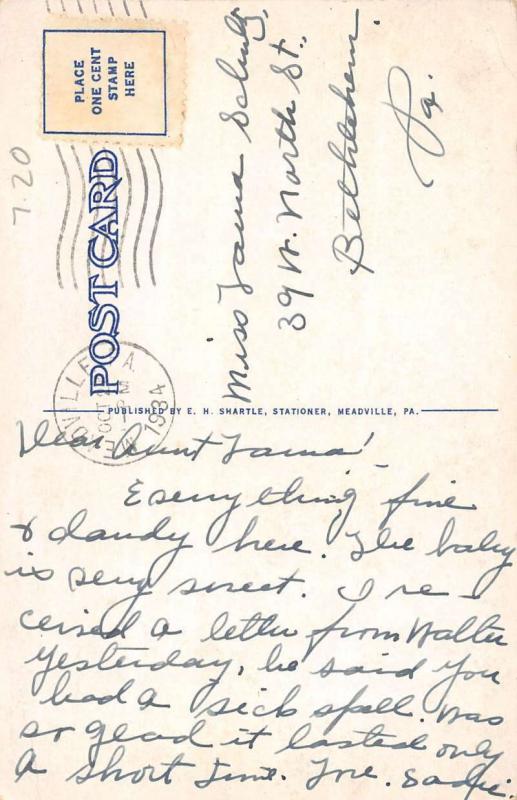 PLACE
ONE CENT
STAMP
HERE
7.20
POST CARD
MEADVILLE PA.
OCT 2
PM
1934
Miss Laura Schultz,
39 W. North St.,
Bethlehem.
Pa.
PUBLISHED BY E. H. SHARTLE, STATIONER, MEADVILLE, PA.
Dear Aunt Laura!
Everything fine
& dandy here. The baby
is very sweet. I re-
ceived a letter from Walter
yesterday, he said you
had a sick spell. Was
so glad it lasted only
a short time. Sadie.